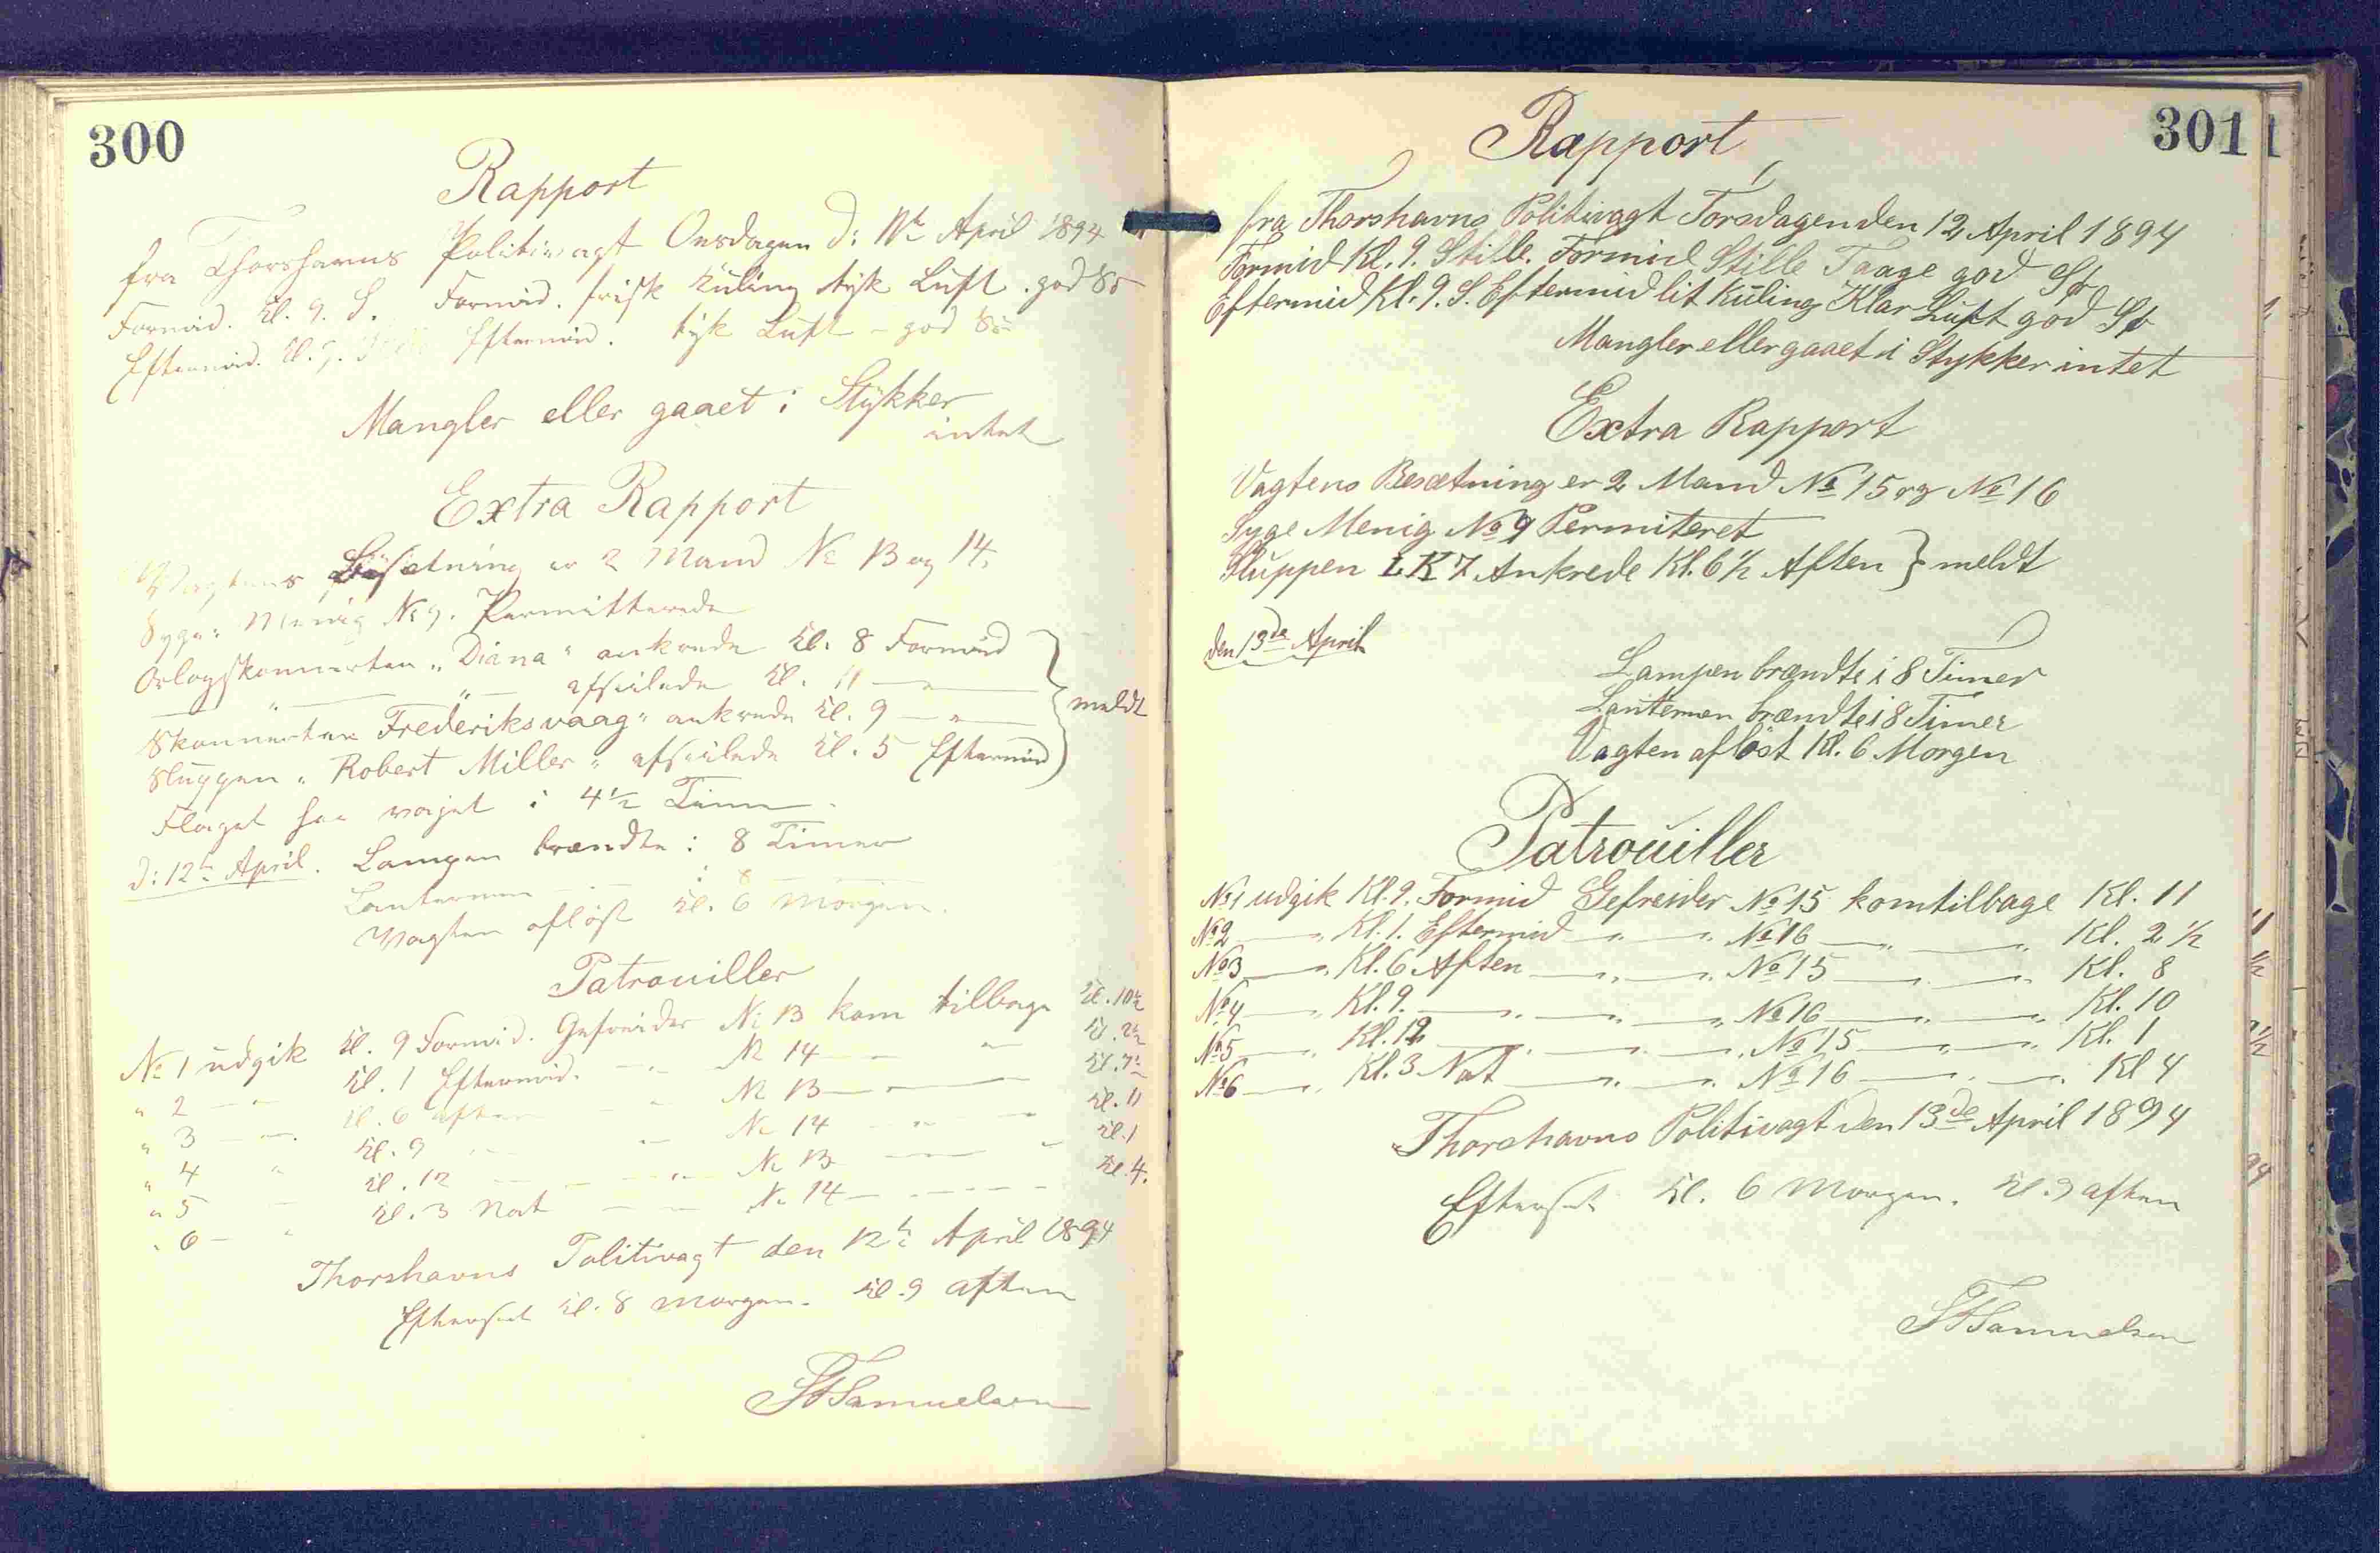 300
Rapport
fra Thorshavns Politivagt Onsdagen d: 11te April 1894
Formid. Kl. 9. S. Formid. frisk Kuling tyk Luft . god Sö
Eftermid. Kl. 9. Eftermid. tyk Luft - god Sö
Mangler eller gaaet i Stykker
intet
Extra Rapport
Vagtens Besætning er 2 Mand No 13 og 14.
Syge: Menig No 9. Permitterede
Orlogskonnerten "Diana" ankrede Kl. 8 Formid
— " — " — afseilede Kl. 11 — " —
Skonnerten Frederiksvaag" ankrede Kl. 9 — " —
meldt
Sluppen "Robert Miller" afseilede Kl. 5 Eftermid
Flaget har vajet i 4 1/2 Time
d: 12te April. Lampen brændte i 8 Timer
Lanternen — i 8 —
Vagten aflöst Kl. 6 Morgen.
Patrouiller
No 1 udgik Kl. 9 Formid. Gefreider No 13 kom tilbage Kl. 10 1/2
" 2 — " Kl. 1 Eftermid. — " No 14 — " Kl. 2 1/2
" 3 — " Kl. 6 Aften — " No 13 — " — Kl. 7 1/2
" 4 " Kl. 9 — " No 14 — " — Kl. 11
" 5 — Kl. 12 — " — No 13 — " Kl. 1
" 6 — " Kl. 3 Nat — — No 14 — — Kl. 4.
Thorshavns Politivagt den 12te April 1894
Efterset Kl. 8 Morgen. Kl. 9 Aften
Samuelsen
301
Rapport
fra Thorshavns Politivagt Torsdagen den 12 April 1894
Formid Kl. 9. Stille. Formid Stille Taage god Sö
Eftermid Kl. 9. S. Eftermid lit Kuling Klar Luft god Sö
Mangler eller gaaet i Stykker intet
Extra Rapport
Vagtens Besætning er 2 Mand No 15 og No 16
Syge Menig No 9 Permiteret
Sluppen L K 7 Ankrede Kl. 6 1/2 Aften } meldt
den 13de April
Lampen brændte i 8 Timer
Lanternen brændte i 8 Timer
Vagten aflöst Kl. 6 Morgen
Patrouiller
No 1 udgik Kl. 9. Formid Gefreider No 15 kom tilbage Kl. 11
No 2 — " Kl. 1. Eftermid — " — " No 16 — " — " Kl. 2 1/2
No 3 — " Kl. 6 Aften — " — " No 15 — " — " Kl. 8
No 4 — " Kl. 9. — " — " — " No 16 — " — " Kl. 10
No 5 — " Kl. 12 — " — " — " No 15 — " — " Kl. 1
No 6 — " Kl. 3 Nat — " — " No 16 — " — " Kl 4
Thorshavns Politivagt den 13de April 1894
Efterset Kl. 6 Morgen. Kl. 9 aften
Samuelsen